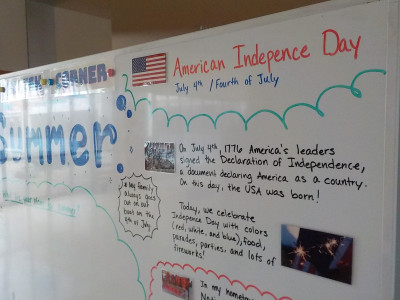 CORNER
Summer
American Indepence Day
July 4th / Fourth of July
On July 4th, 1776 America's leaders
signed the Declaration of Independence,
a document declaring America as a country.
On this day, the USA was born!
* my family
always goes
out on our
boat on the
4th of July
Today, we celebrate
Indepence Day with colors
(red, white, and blue), food,
parades, parties, and lots of
fireworks!
In my hometown